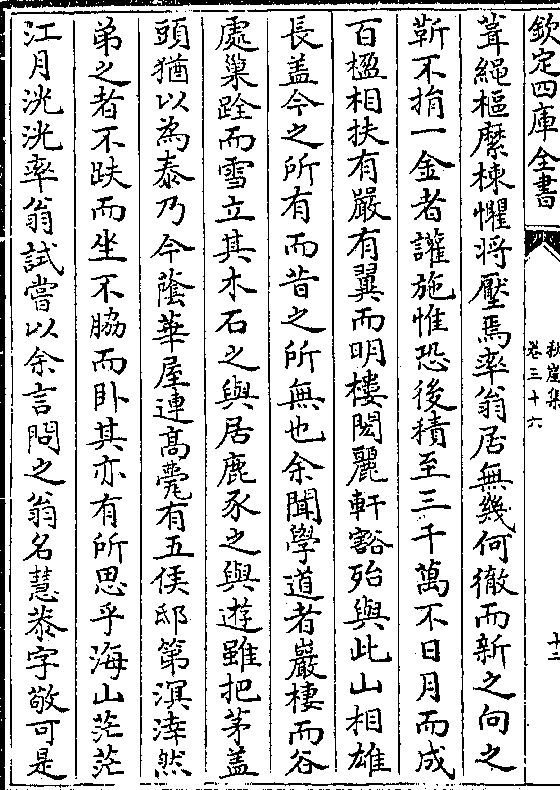 欽定四庫全書
秋崖集
卷三十六
十二
葺繩樞縻棟懼將壓焉率翁居無幾何徹而新之向之
靳不捐一金者讙施惟恐後積至三千萬不日月而成
百楹相扶有嚴有翼而明樓閎麗軒豁殆與此山相雄
長盖今之所有而昔之所無也余聞學道者巖棲而谷
處巢跧而雪立其木石之與居鹿豕之與遊雖把茅盖
頭猶以為泰乃今蔭華屋連高甍有五侯邸第溟涬然
弟之者不趺而坐不脇而卧其亦有所思乎海山茫茫
江月洸洸率翁試嘗以余言問之翁名慧㳟字敬可是